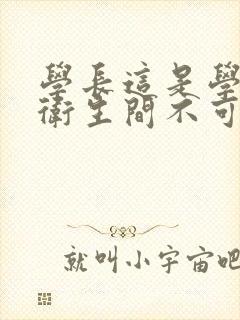 學長這是學
衛生間不可
就叫小宇宙吧